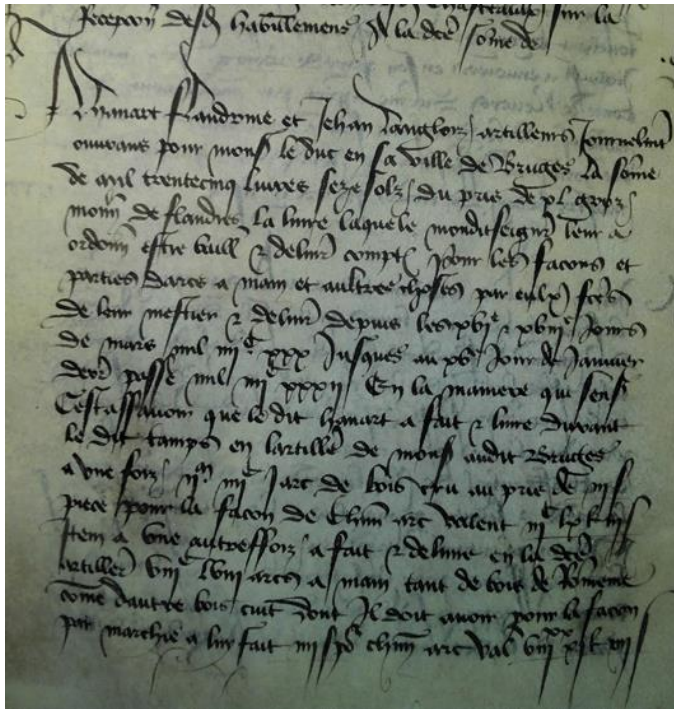 Recepcion desd habillemens A la dce some de
A hanart flandrine et Jehan Langloiz artilleurs Journelmt
ouvrans pour mons le duc en sa ville de Bruges La some
de mil trentecinq livres seze solz du pris de xl groz
monn de flandres la livre laquele monditseignr leur a
ordonn estre baill & delivr compt pour les facons et
parties darcs a main et aultres choses par eulx fces
de leur mestier & delivr depuis les xvi e & xviii e Jours
de mars mil iiii c xxx Jusques au xv e Jour de Janvier
derr passe mil iiii xxxii En la maniere qui senst
Cestassavoir que le dit hanart a fait & livre durant
le dit tamps en lartille de mons audit Bruges
a une foiz ii m iiii c J arc de bois cru au pris de iii s
piece pour la facon de chun arc valent iii c lx l iii s
Item a une autreffoiz a fait & delivre en la dce
artiller viii c lviii arcs a main tant de bois de Romenie
come dautre bois cuit dont Il doit avoir pour la facon
par marchie a lui fait iiii s po chun arc val viii xx xi l xii s